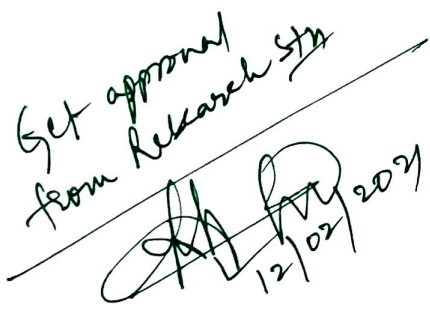 Get approval
from Rekareh Stn
12/02/2021